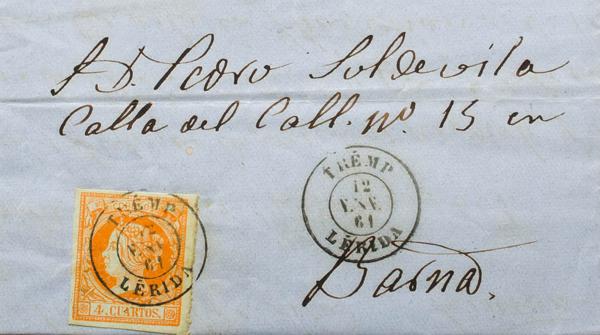 A D. Pedro Soldevila
Calla del Call. nº 15 en
Barna.
TRÉMP
12
ENE.
61
LÉRIDA
TRÉMP
12
ENE.
61
LÉRIDA
4 CUARTOS.